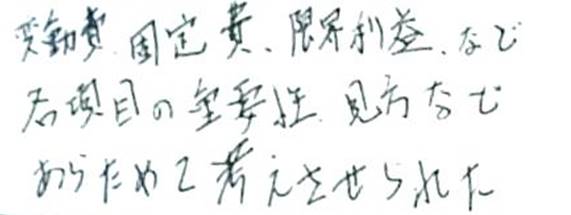 変動費、固定費、限界利益、など
各項目の重要性、見方など
あらためて考えさせられた